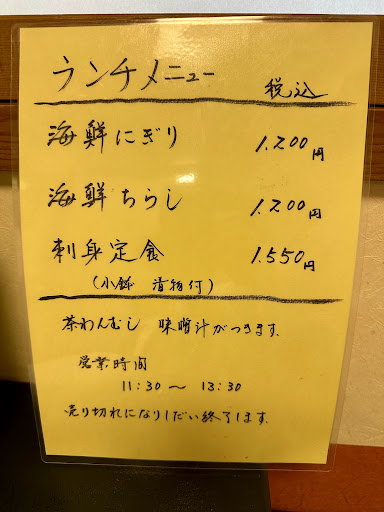 ランチメニュー
税込
海鮮にぎり 1.200円
海鮮ちらし 1.200円
刺身定食 1.550円
(小鉢 漬物付)
茶わんむし 味噌汁がつきます。
営業時間
11:30 〜 13:30
売り切れになりしだい終了します。